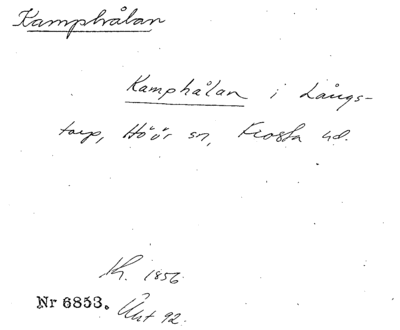 Kamphålan
Kamphålan i Långs-
torp, Höör sn, Frosta hd.
Kh. 1856
Nr 6853. Akt 92.